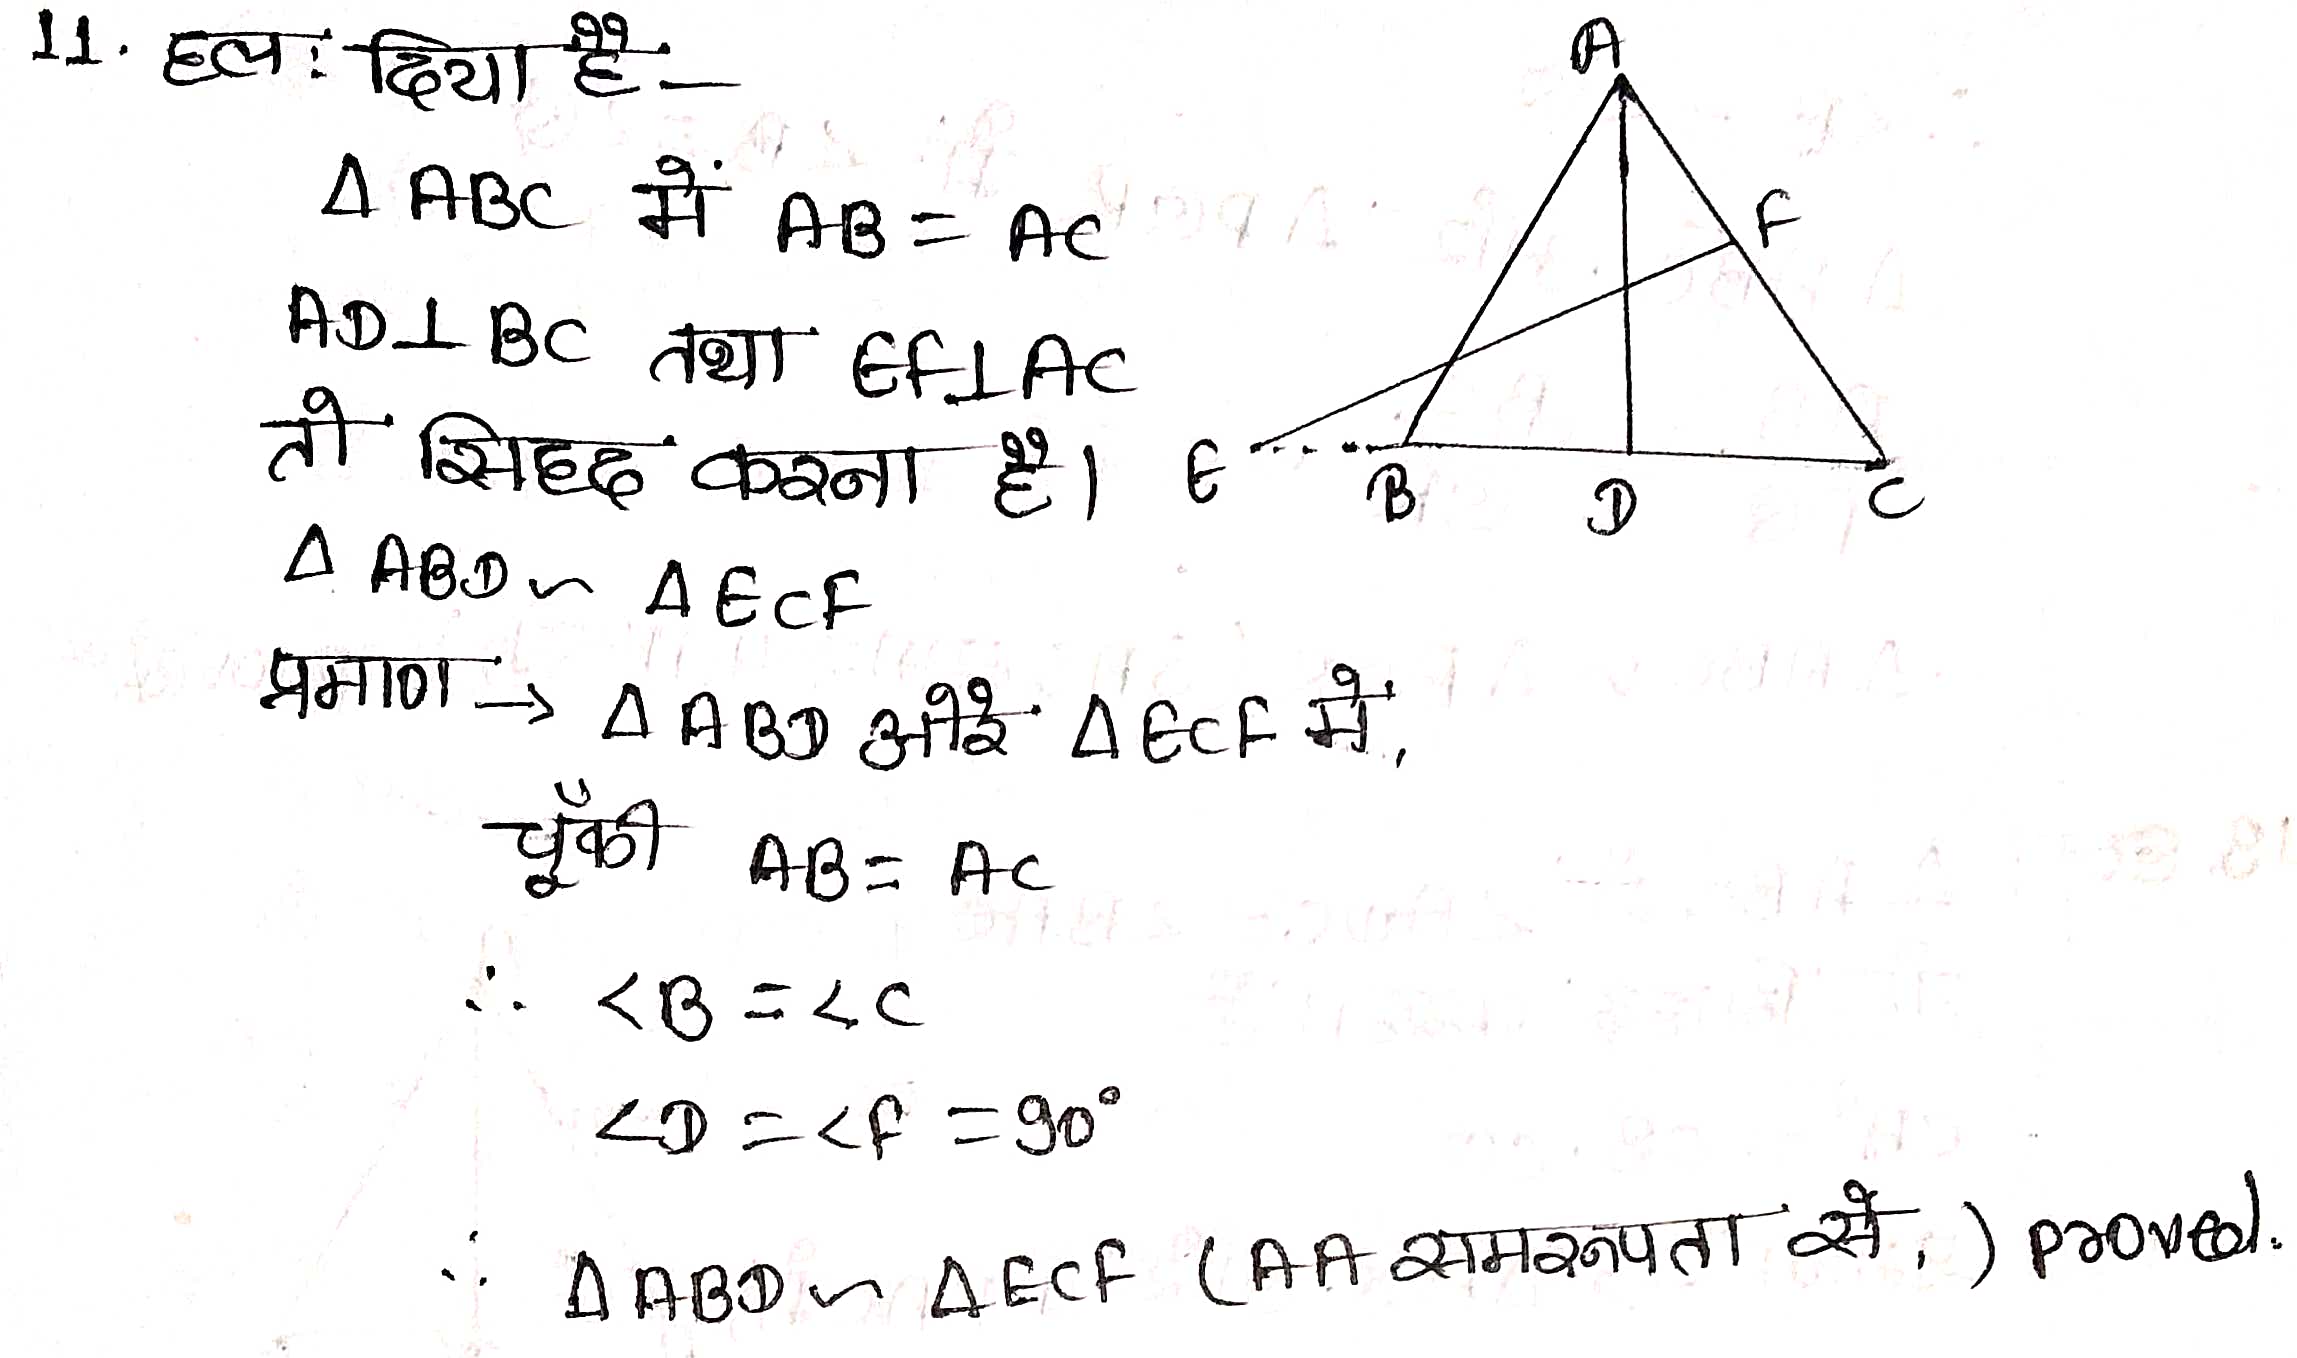 11. हल: दिया है —
A
Δ ABC में AB = AC
F
AD⊥BC तथा EF⊥AC
तो सिद्ध करना है।
E B D C
Δ ABD ~ Δ ECF
प्रमाण → Δ ABD और Δ ECF में,
चूँकी AB = AC
∴ <B = <C
<D = <F = 90°
∴ Δ ABD ~ Δ ECF (AA समरूपता से,) proved.